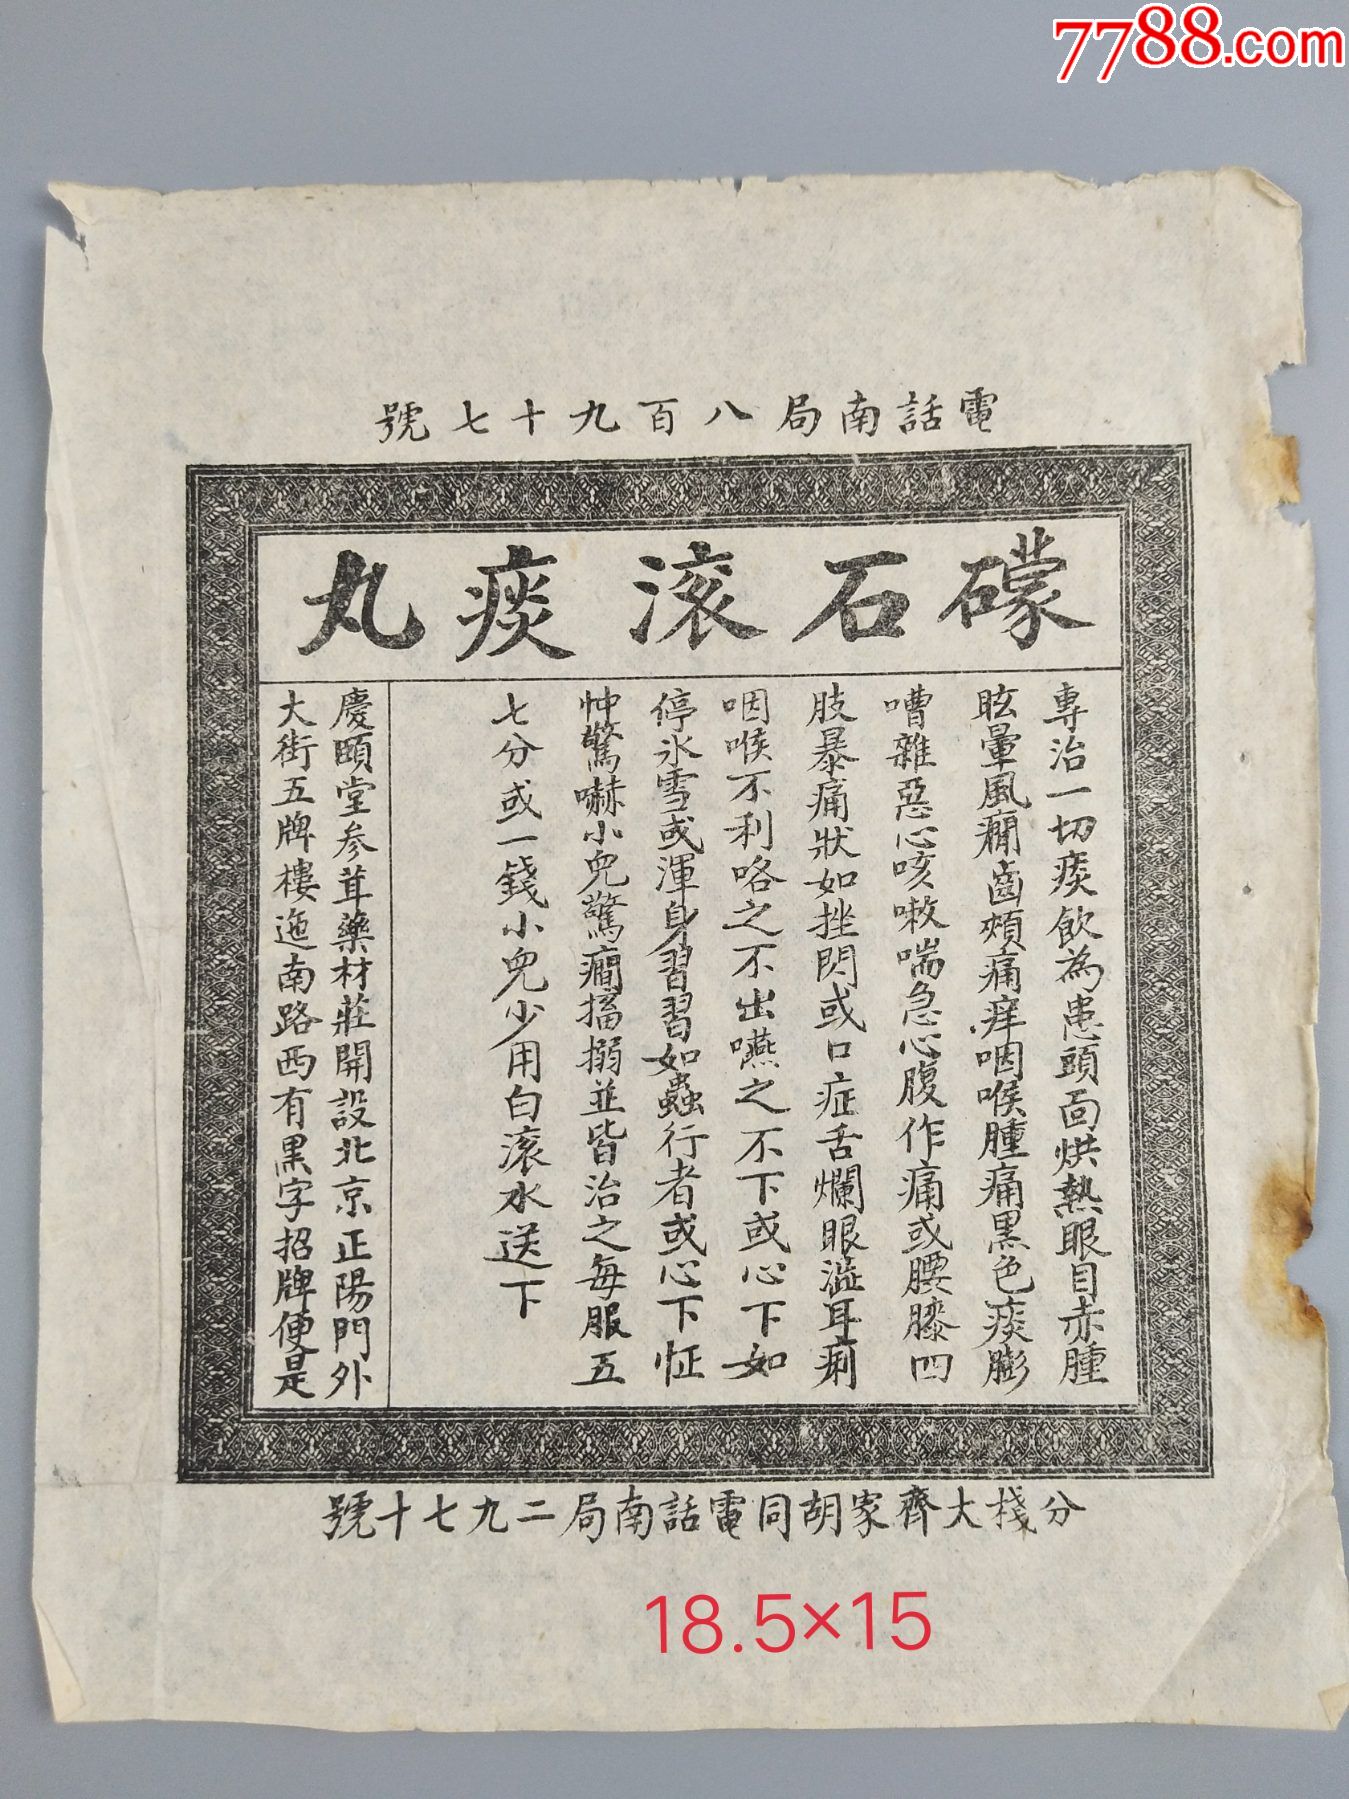 7788.com
電話南局八百九十七號
礞石滚痰丸
專治一切痰飲為患頭面烘熱眼目赤腫
眩暈風癇齒頰痛痒咽喉腫痛黑色痰膨
嘈雜惡心咳嗽喘急心腹作痛或腰膝四
肢暴痛狀如挫閃或口症舌爛眼澁耳痢
咽喉不利咯之不出嚥之不下或心下如
停氷雪或渾身習習如蟲行者或心下怔
忡驚嚇小兒驚癇搐搦並皆治之每服五
七分或一錢小兒少用白滚水送下
慶頤堂参茸藥材莊開設北京正陽門外
大街五牌樓迤南路西有黑字招牌便是
分棧大齊家胡同電話南局二九七十號
18.5×15